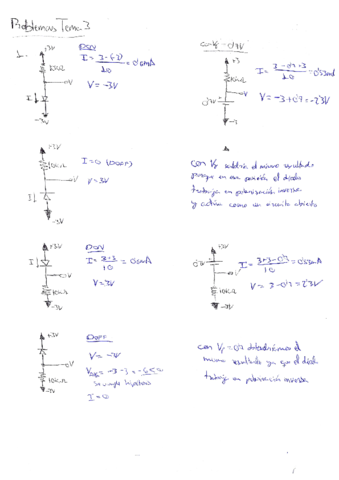 Problemas Tema 3
1-
+3V
DON
I = 3-(-3) / 10 = 0'6mA
10KΩ
V = -3V
I↓
-3V
+3
10KΩ
I = 3-0'7+3 / 10 = 0'53mA
0'7
V = -3+0'7 = -2'3V
-3
+3V
10KΩ
I = 0 (DOFF)
V = 3V
I↓
-3V
con Vf saldría el mismo resultado
porque en esa posición el diodo
trabaja en polarización inversa
y actúa como un circuito abierto
+3V
DON
I↓
I = 3+3 / 10 = 0'6mA
V = 3V
10KΩ
-3V
+3V
0'7
I = 3+3-0'7 / 10 = 0'53mA
V = 3-0'7 = 2'3V
10KΩ
-3V
+3V
DOFF
V = -3V
10KΩ
Se cumple hipótesis
-3V
I = 0
con Vf = 0'7 obtendríamos el
mismo resultado ya que el diodo
trabaja en polarización inversa